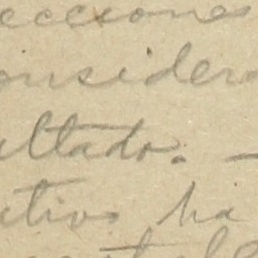 ecciones
onsidera
ultado. —
utivo ha